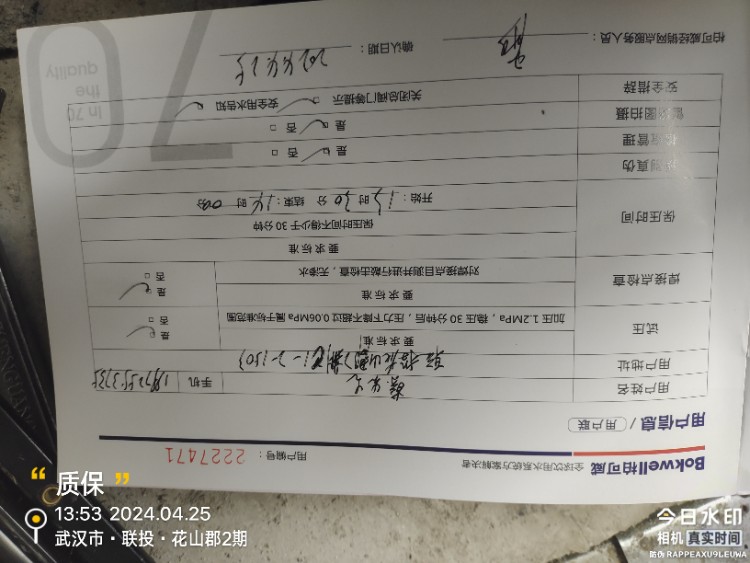 Bokwell柏可威 全球饮用水系统方案解决者
用户编号： 2227471
用户信息 / 用户联
用户姓名
手机
用户地址
试压
要求标准
加压1.2MPa，稳压30分钟后，压力下降不超过0.06MPa属于标准范围
是
否
焊接点检查
要求标准
对焊接点目测并进行敲击检查，无渗水
是
否
保压时间
要求标准
保压时间不得少于30分钟
开始：13时30分 结束：14时00分
是 否
管理
是 否
图拍摄
安全措辞
关闭总阀门等提示 安全用水告知
柏可威经销网点服务人员：
确认日期：
70
In 70
the
quality
“质保”
13:53 2024.04.25
武汉市·联投·花山郡2期
今日水印
相机 真实时间
防伪 RAPPEAXU9LEUWA